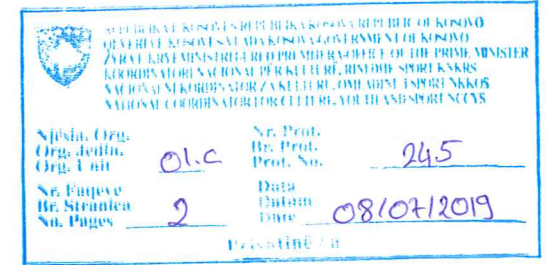 REPUBLIKA E KOSOVËS REPUBLIKA KOSOVA REPUBLIC OF KOSOVO
QEVERIA E KOSOVËS VLADA KOSOVA GOVERNMENT OF KOSOVO
ZYRA E KRYEMINISTRIT URED PREMIJERA OFFICE OF THE PRIME MINISTER
KOORDINATORI NACIONAL PËR KULTURË, RINI DHE SPORT KNKRS
NACIONALNI KORDINATOR ZA KULTURE, OMLADINE I SPORT NKKOS
NATIONAL COORDINATOR FOR CULTURE, YOUTH AND SPORT NCCYS
Njësia. Org. Nr. Prot.
Org. Jedin. Br. Prot.
Org. Unit 01.C Prot. No. 245
Nr. Faqeve Data
Br. Stranica Datum
No. Pages 2 Date 08/07/2019